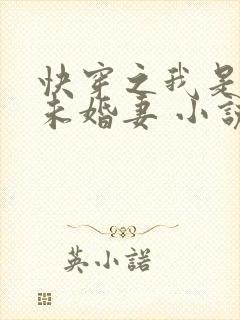 快穿之我是
未婚妻 小説
英小諾